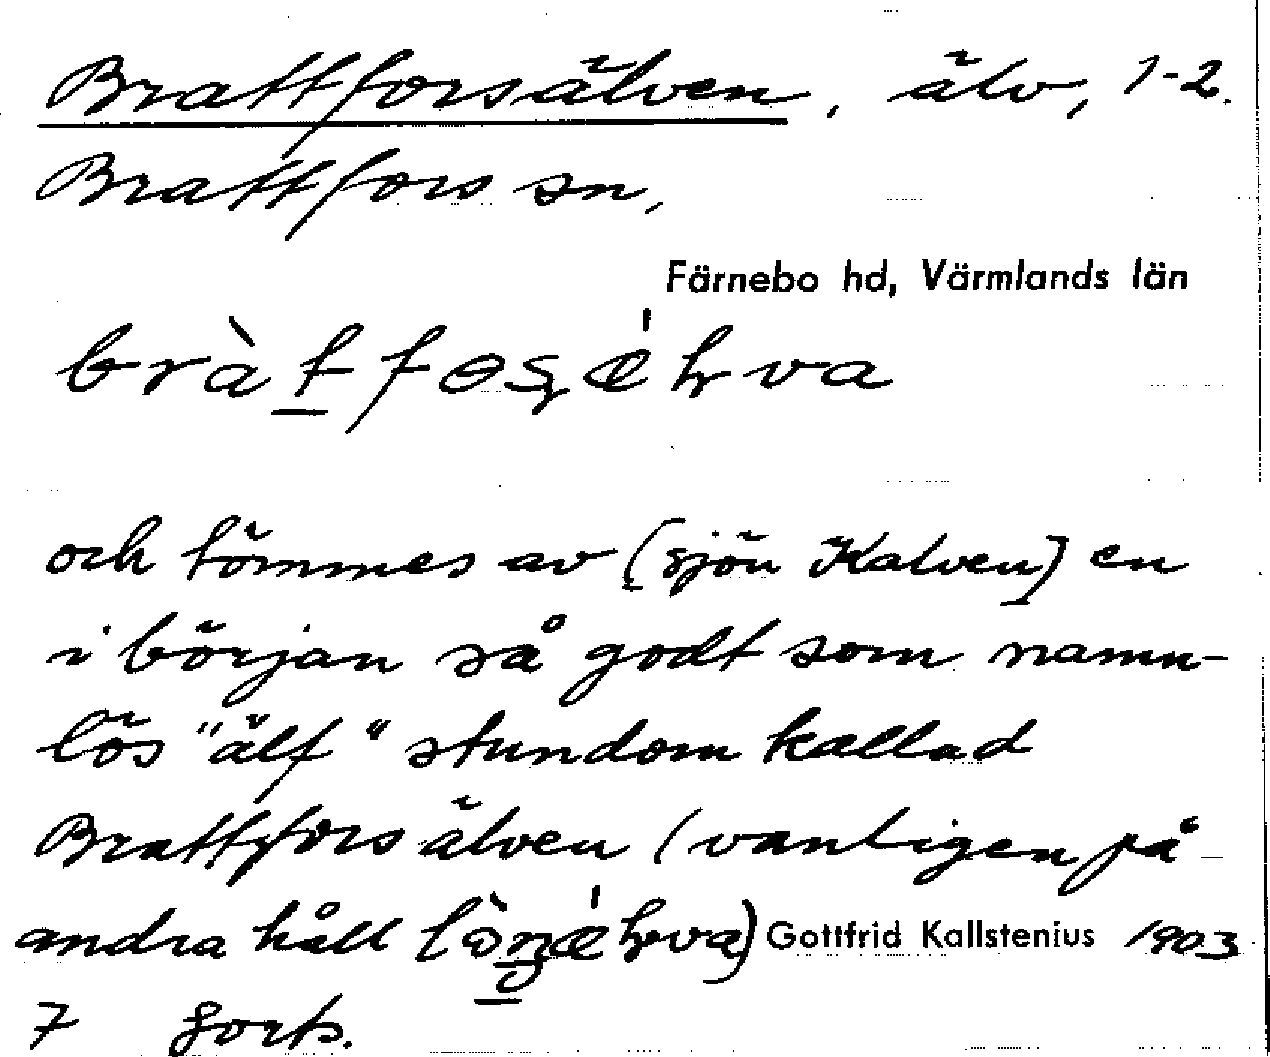 Brattforsälven, älv, 1-2.
Brattfors sn,
Färnebo hd, Värmlands län
och tömmes av [sjön Kalven] en
i början så godt som namn-
lös "älf" stundom kallad
Brattforsälven (vanligen på
andra håll Gottfrid Kallstenius 1903
7 forts.